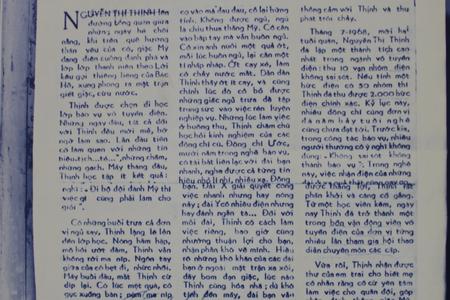 NGUYỄN THỊ THỊNH làm
đường bổng quân giữa
những ngày hè chói
nắng, khi trên quê hương
thân yêu của cô, giặc Mỹ
đang điên cuồng đánh phá và
lớp lớp thanh niên theo Lời
kêu gọi thiêng liêng của Bác
Hồ, xung phong ra mặt trận
giết giặc, cứu nước.
Thịnh được chọn đi học
lớp báo vụ vô tuyến điện.
Những ngày đầu, tất cả đối
với Thịnh đều mới mẻ, bỡ
ngỡ làm sao. Lần đầu tiên
cô làm quen với những tín
hiệu «tích...tè...», «những chấm,
những gạch. Mấy tháng đầu,
Thịnh học tập ít kết quả:
nghỉ: « Đi bộ đội đánh Mỹ thì
việc gì cũng phải làm cho
giỏi ».
Có những buổi trưa cả đơn
vị ngủ say, Thịnh lặng lẽ lên
lớp học. Nóng hầm hập,
mồ hôi ướt đầm, Thịnh vẫn
không rời ma níp. Ngón tay
giữa của cô bẹt đi, nhức nhối.
Mấy buổi đầu, mắt Thịnh cứ
díp lại. Có lúc mệt quá, cô
gục xuống bàn; nắm ma níp
cọ vào má đau đớn, cô lại bừng
tỉnh. Không được ngủ, ngủ
là chịu thua thằng Mỹ. Cô cắn
vào bắp tay mà vẫn buồn ngủ.
Cô xin anh nuôi một quả ớt,
mỗi lúc buồn ngủ, lại cắn một
tí nhấp nháp. Ớt cay xé, làm
cô chảy nước mắt. Dần dần
Thịnh thấy ớt ít cay, và cũng
chính lúc đó cô bỏ được
những giấc ngủ trưa để tập
trung sức vào việc rèn luyện
nghiệp vụ. Những lúc làm việc
ở buồng thu, Thịnh chăm chú
học hỏi kinh nghiệm của các
đồng chí cũ. Đồng chí Ước,
mười năm trong nghề báo vụ,
có tài bắt liên lạc với đài bạn
nhanh, nghe được cả từng tín
hiệu nhỏ lí nhí, nhiễu xạ. Đồng
bạn. Đài A giải quyết công
việc nhanh nhưng hay nóng
nảy; đài Y có nhiều điện nhưng
hay đánh ngắn tà... Đối với
mỗi đài, Thịnh có cách làm
việc riêng, bao giờ cũng
nhường thuận lợi cho bạn,
nhận phần khó về mình. Hiểu
rõ những khó khăn của các đài
bạn ở ngoài mặt trận xa xôi,
đầy bom đạn giặc, lúc nào
Thịnh cũng hòa nhã; dù khó
tính đến mấy, đài bạn vẫn
thông cảm với Thịnh và thu
phát trôi chảy.
Tháng 7-1968, mới hai
tuổi quân, Nguyễn Thị Thịnh
đã lập một thành tích cao
nhất trong ngành vô tuyến
điện: thu 10 vạn nhóm điện
không sai sót. Nếu tính một
bức điện có 50 nhóm thì
Thịnh đã thu được 2.000 bức
điện chính xác. Kỷ lục này,
nhiều đồng chí cùng đơn vị
đã năm bảy tuổi nghề
cũng chưa đạt tới. Trước kia,
trong công tác báo vụ, nhiều
người thường có ý nghĩ không
đúng: « Không sai sót không
thành báo vụ ». Trong nghề
này, việc nhận điện của những
được thắng lợi, Thịnh rất
phấn khởi và càng cố gắng.
Từ một học viên kém, ngày
nay Thịnh đã trở thành một
trong bốn vận động viên vô
tuyến điện của đơn vị từng
nhiều lần tham gia hội thao
diễn chuyên môn các cấp.
Vừa rồi, Thịnh nhận được
thư của em trai cho biết mẹ
cô nhắn rằng cô cứ yên tâm
làm việc cho quân đội, góp